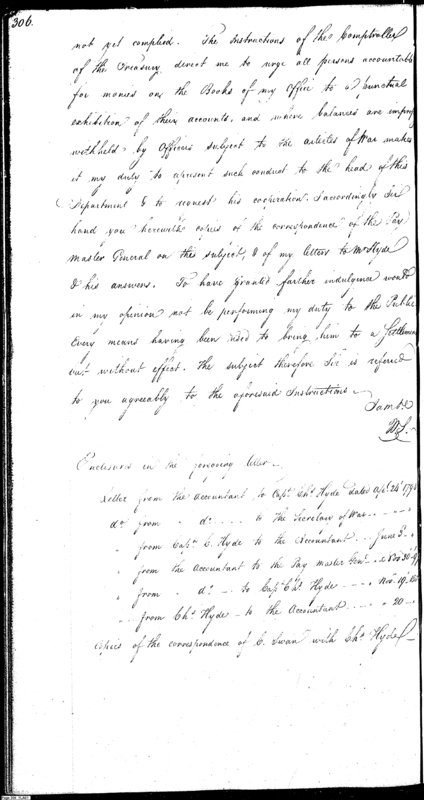 306.
not yet complied. The Instructions of the Comptroller
of the Treasury direct me to urge all persons accountable
for monies on the Books of my Office to a punctual
exhibition of their accounts, and where balances are improp
withheld by Officers subject to the articles of War makes
it my duty to represent such conduct to the head of this
Department & to request his cooperation. I accordingly Sir
hand you herewith copies of the correspondence of the Pay
Master General on this subject, & of my letters to Mr Hyde
& his answers. To have granted farther indulgence would
in my opinion not be performing my duty to the Public
every means having been used to bring him to a Settlement
but without effect. The subject therefore Sir is referred
to you agreeably to the aforesaid Instructions—
I am &c
Enclosures in the foregoing letter—
Letter from the Accountant to Capt. Chs. Hyde dated Apl. 24th
do from do to the Secretary of War
" from Capt. C. Hyde to the Accountant June 3d
" from the Accountant to the Pay Master Genl. Nov 30
" from do to Capt Chs. Hyde Nov. 19.
from Chs. Hyde to the Accountant 20
Copies of the correspondence of C. Swan with Chs. Hyde